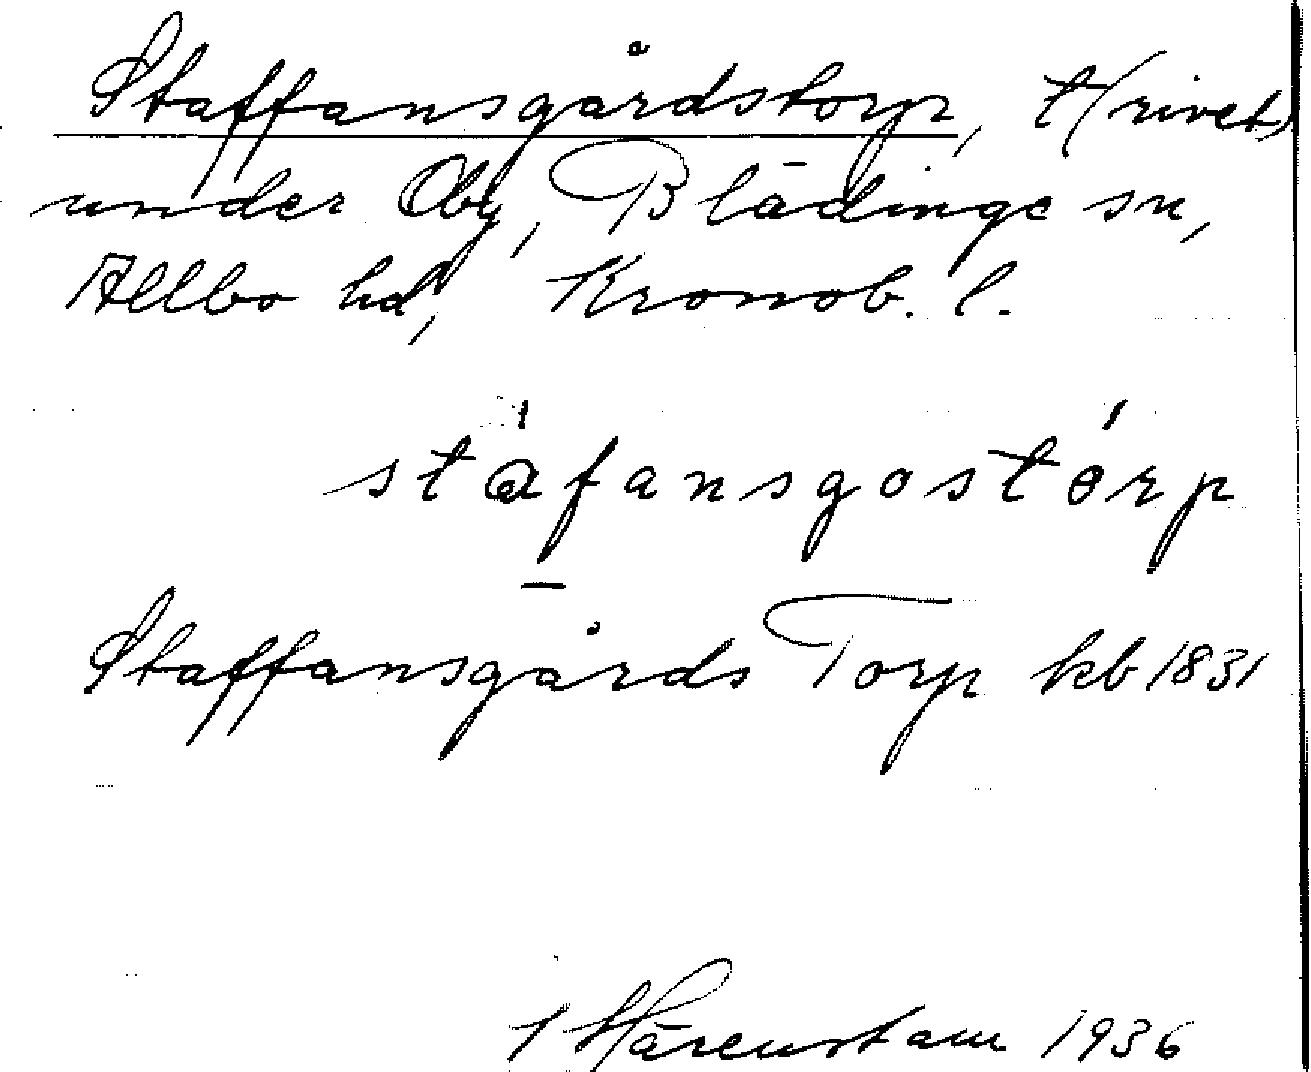 Staffansgårdstorp, t (rivet)
under Oby, Blädinge sn,
Allbo hd, Kronob. l.
stáfansgostórp
Staffansgårds Torp kb 1831
Härenstam 1936